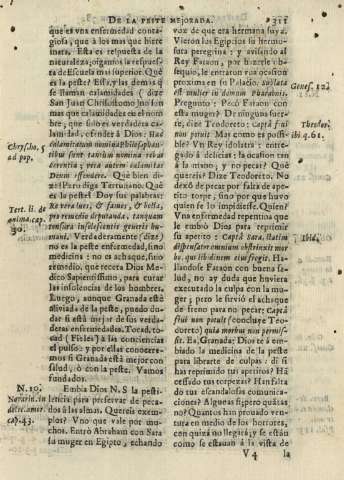 DE LA PESTE MEJORADA. 311
que es vna enfermedad conta-
giosa, que à los mas que hiere
mata. Esta es respuesta de la
naturaleza; oigamos la respues-
ta de Escuela mas superior. Què
es la peste? Esta, y las demàs q̃
se llaman calamidades (dize
San Juan Chrisostomo) no son
mas que calamidades en el nom
bre, que si lo es verdadera ca-
lamidad, ofender à Dios: Hæc
calamitatum nomina
tibus sunt tantum calamitas nomina
vera autem calamitas
Deum offendere. Què bien di-
ze! Pero diga Tertuliano. Què
es la peste? Doy sus palabras:
Re vera lues, & fames, & bella,
pro remedio deputanda, tanquam
tonsura insolescentis generis hu-
mani. Verdaderamente (dize)
no es la peste enfermedad, sino
medicina: no es achaque, sino
remedio, que receta Dios Me-
dico Sapientissimo, para curar
las insolencias de los hombres.
Luego, aunque Granada està
aliviada de la peste, puedo du-
dar si està mejor de sus verda-
deras enfermedades. Tocad, to-
cad (Fieles) à las conciencias
el pulso: y por ellas conocere-
mos si Granada està mejor con
salud, ò con la peste. Vamos
fundados.
Embia Dios N. S. la pesti-
lencia para preservar de peca-
dos à las almas. Quereis exem-
plos? Vno que vale por mu-
chos. Entrò Abraham con Sara
su muger en Egipto, echando
Chrysost. ho.
ad pop.
Tert. li. de
anima, cap.
30.
N. 10.
Navarin. in
cap. 43.
voz de que era hermana suya.
Vieron los Egipcios su hermo-
sura peregrina; y avisando al
Rey Faraon, por hazerle ob-
sequio, le entraron tan ocasion
proxima en su Palacio. sublata
est mulier in domum Pharaonis.
Pregunto: Pecò Faraon con
esta muger? De ninguna suer-
te, dize Teodoreto: Capta
non potuit. Mas como es possi-
ble? Vn Rey idolatra: entre-
gado à delicias: la ocasion tan
à la mano; y no pecar? Què
quereis? Dize Teodoreto. No
dexò de pecar por falta de ape-
tito torpe, sino por que huvo
quien se lo impidiesse. Quien?
Vna enfermedad repentina que
le embiò Dios para reprimir
su apetito: Capta Sara, statim
dispensator omnium obstrinxit mor
bo, qui libidinem eius fregit. Ha-
llandose Faraon con buena sa-
lud, no ay duda que huviera
executado la culpa con la mu-
ger; pero le sirviò el achaque
de freno para no pecar: Capta
frui non potuit (concluye Teo-
doreto) quia morbus non permi-
sit. Ea, Granada; Dios te à em-
biado la medicina de la peste
para librarte de culpas: di si
has reprimido tus apetitos? Hà
cessado tus torpezas? Han falta
do tus escandalosas comunica-
ciones? Algunas espero quitas
no? Quantos han provado ven-
tura en medio de los horrores,
con quizà no llegarà; y se estàn
como se estauan à la vista de
V 4 la
Genes. 12.
Theodor.
ibi q. 61.
Ibid.